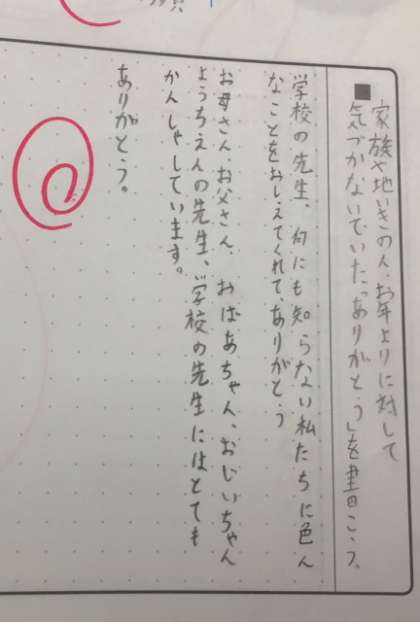 ■家族や地いきの人、お年よりに対して
気づかないでいた「ありがとう」を書こう。
学校の先生、何にも知らない私たちに色ん
なことをおしえてくれて、ありがとう
お母さん、お父さん、おばあちゃん、おじいちゃん
ようちえんの先生、学校の先生にはとても
かんしゃしています。
ありがとう。